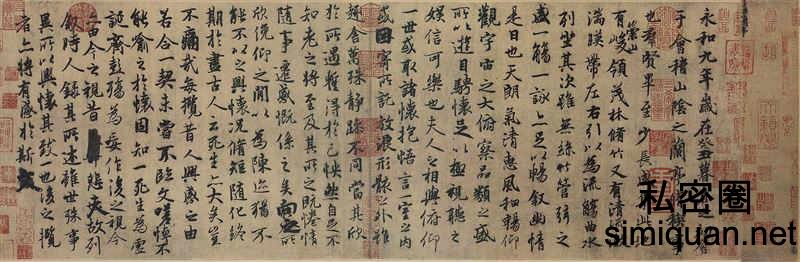 永和九年歲在癸丑暮春之初
于會稽山陰之蘭亭脩稧事
也羣賢畢至少長咸集此
有崇山峻領茂林脩竹又有清流
湍暎帶左右引以為流觴曲水
列坐其次雖無絲竹管弦之
盛一觴一詠亦足以暢敘幽情
是日也天朗氣清惠風和暢仰
觀宇宙之大俯察品類之盛
所以遊目騁懷足以極視聽之
娛信可樂也夫人之相與俯仰
一世或取諸懷抱悟言一室之內
或因寄所託放浪形骸之外雖
趣舍萬殊靜躁不同當其欣
於所遇蹔得於己怏然自足不
知老之將至及其所之既惓情
隨事遷感慨係之矣向之所
欣俛仰之閒以為陳迹猶不
能不以之興懷況脩短隨化終
期於盡古人云死生亦大矣豈
不痛哉每攬昔人興感之由
若合一契未嘗不臨文嗟悼不
能喻之於懷固知一死生為虛
誕齊彭殤為妄作後之視今
亦由今之視昔悲夫故列
敘時人錄其所述雖世殊事
異所以興懷其致一也後之攬
者亦將有感於斯文
私密圈
simiquan.net